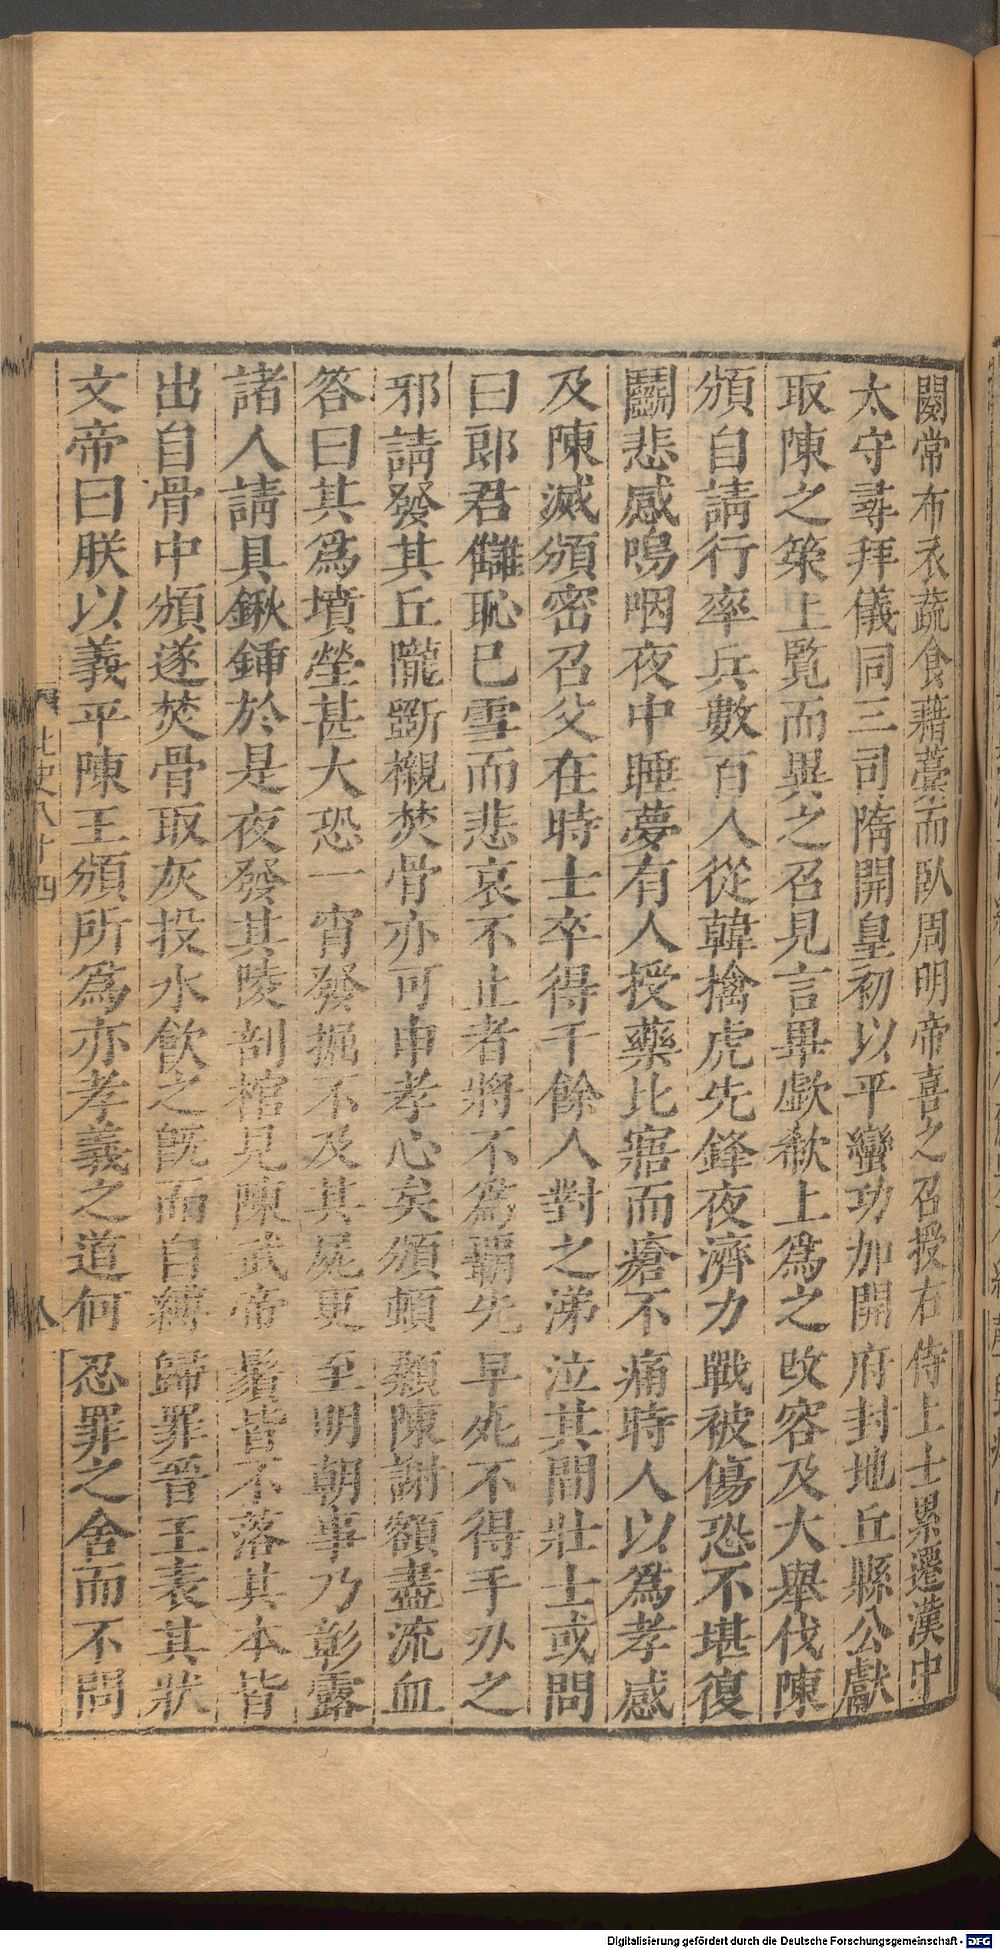 闋常布衣蔬食藉藁而臥周明帝喜之召授右侍上士累遷漢中
太守尋拜儀同三司隋開皇初以平蠻功加開府封地丘縣公獻
取陳之策上覧而異之召見言畢歔欷上爲之改容及大舉伐陳
頒自請行率兵數百人從韓擒虎先鋒夜濟力戰被傷恐不堪復
鬭悲感嗚咽夜中睡夢有人授藥比寤而瘡不痛時人以爲孝感
及陳滅頒密召父在時士卒得千餘人對之涕泣其間壯士或問
曰郎君讎恥已雪而悲哀不止者將不爲霸先早死不得手刃之
邪請發其丘隴斵櫬焚骨亦可申孝心矣頒頓顙陳謝額盡流血
答曰其爲墳塋甚大恐一宵發掘不及其屍更至明朝事乃彰露
諸人請具鍬鍤於是夜發其陵剖棺見陳武帝鬚皆不落其本皆
出自骨中頒遂焚骨取灰投水飲之旣而自縛歸罪晉王表其狀
文帝曰朕以義平陳王頒所爲亦孝義之道何忍罪之舍而不問
北史八十四
八
Digitalisierung gefördert durch die Deutsche Forschungsgemeinschaft - DFG